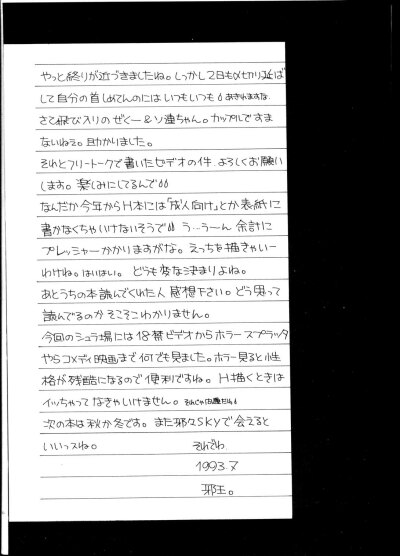 やっと終りが近づきましたね。しっかし2日も〆切り延ば
して自分の首しめてんのにはいつもいつもあきれますな
さて飛び入りのぜくー&ソ連ちゃん。カップルですま
ないねぇ。助かりました。
それとフリートークで書いたビデオの件、よろしくお願い
します。楽しみにしてるんで
なんだか今年からH本には「成人向け」とか表紙に
書かなくちゃいけないそうで う…う〜ん 余計に
プレッシャーかかりますがな。えっちを描きゃいー
わけね。はいはい。 どうも変な決まりよね。
あとうちの本読んでくれた人 感想下さい。どう思って
読んでるのかそこそこわかりません。
今回のシュラ場には18禁ビデオからホラー スプラッタ
やらコメディ映画まで何でも見ました。ホラー見ると性
格が残酷になるので便利ですね。H描くときは
イッちゃってなきゃいけません。
次の本は秋か冬です。また邪々SKYで会えると
いいっスね。 それでわ
1993.7
邪王。